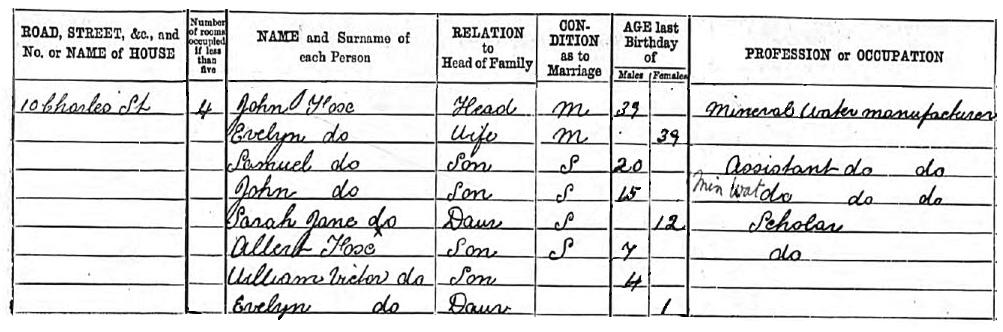 ROAD, STREET, &c., and No. or NAME of HOUSE | Number of rooms occupied if less than five | NAME and Surname of each Person | RELATION to Head of Family | CONDITION as to Marriage | AGE last Birthday of Males Females | PROFESSION or OCCUPATION
10 Charles St 4 John Hose Head M 39 Mineral Water manufacturer
Evelyn do Wife M 39
Samuel do Son S 20 Assistant do do
John do Son S 15 Min Wat do do do
Sarah Jane do Daur S 12 Scholar
Albert Hose Son S 7 do
William Victor do Son 4
Evelyn do Daur 1